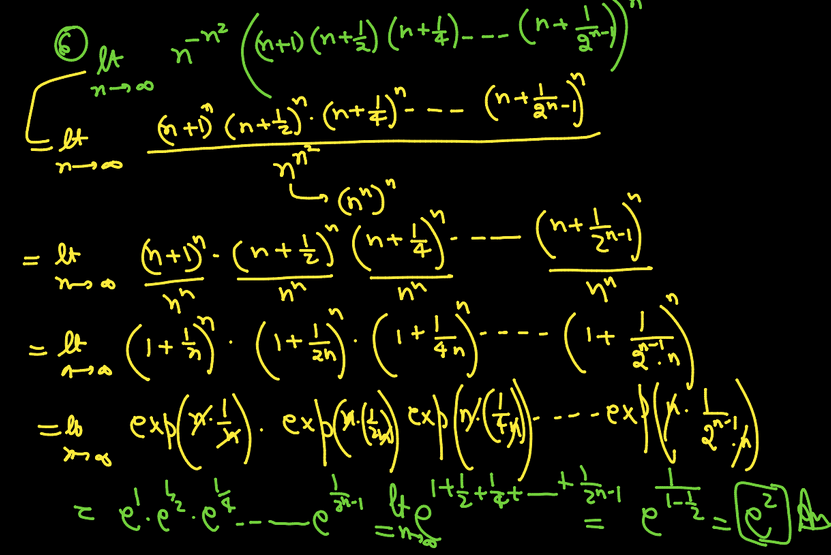 ⑥ lt n→∞ n^{-n²} ((n+1)(n+1/2)(n+1/4)---- (n+1/2^{n-1}))^n
= lt n→∞ ((n+1)^n (n+1/2)^n · (n+1/4)^n ---- (n+1/2^{n-1})^n) / n^{n²}
→ (n^n)^n
= lt n→∞ (n+1)^n/n^n · (n+1/2)^n/n^n (n+1/4)^n/n^n · ---- (n+1/2^{n-1})^n/n^n
= lt n→∞ (1+1/n)^n · (1+1/2n)^n · (1+1/4n)^n ---- (1+1/2^{n-1}·n)^n
= lt n→∞ exp(n·1/n) · exp(n·(1/2n)) exp(n·(1/4n)) ---- exp(n·1/2^{n-1}·n)
= e^1 · e^{1/2} · e^{1/4} ---- e^{1/2^{n-1}} = lt n→∞ e^{1+1/2+1/4+---+1/2^{n-1}} = e^{1/(1-1/2)} = e² Ans